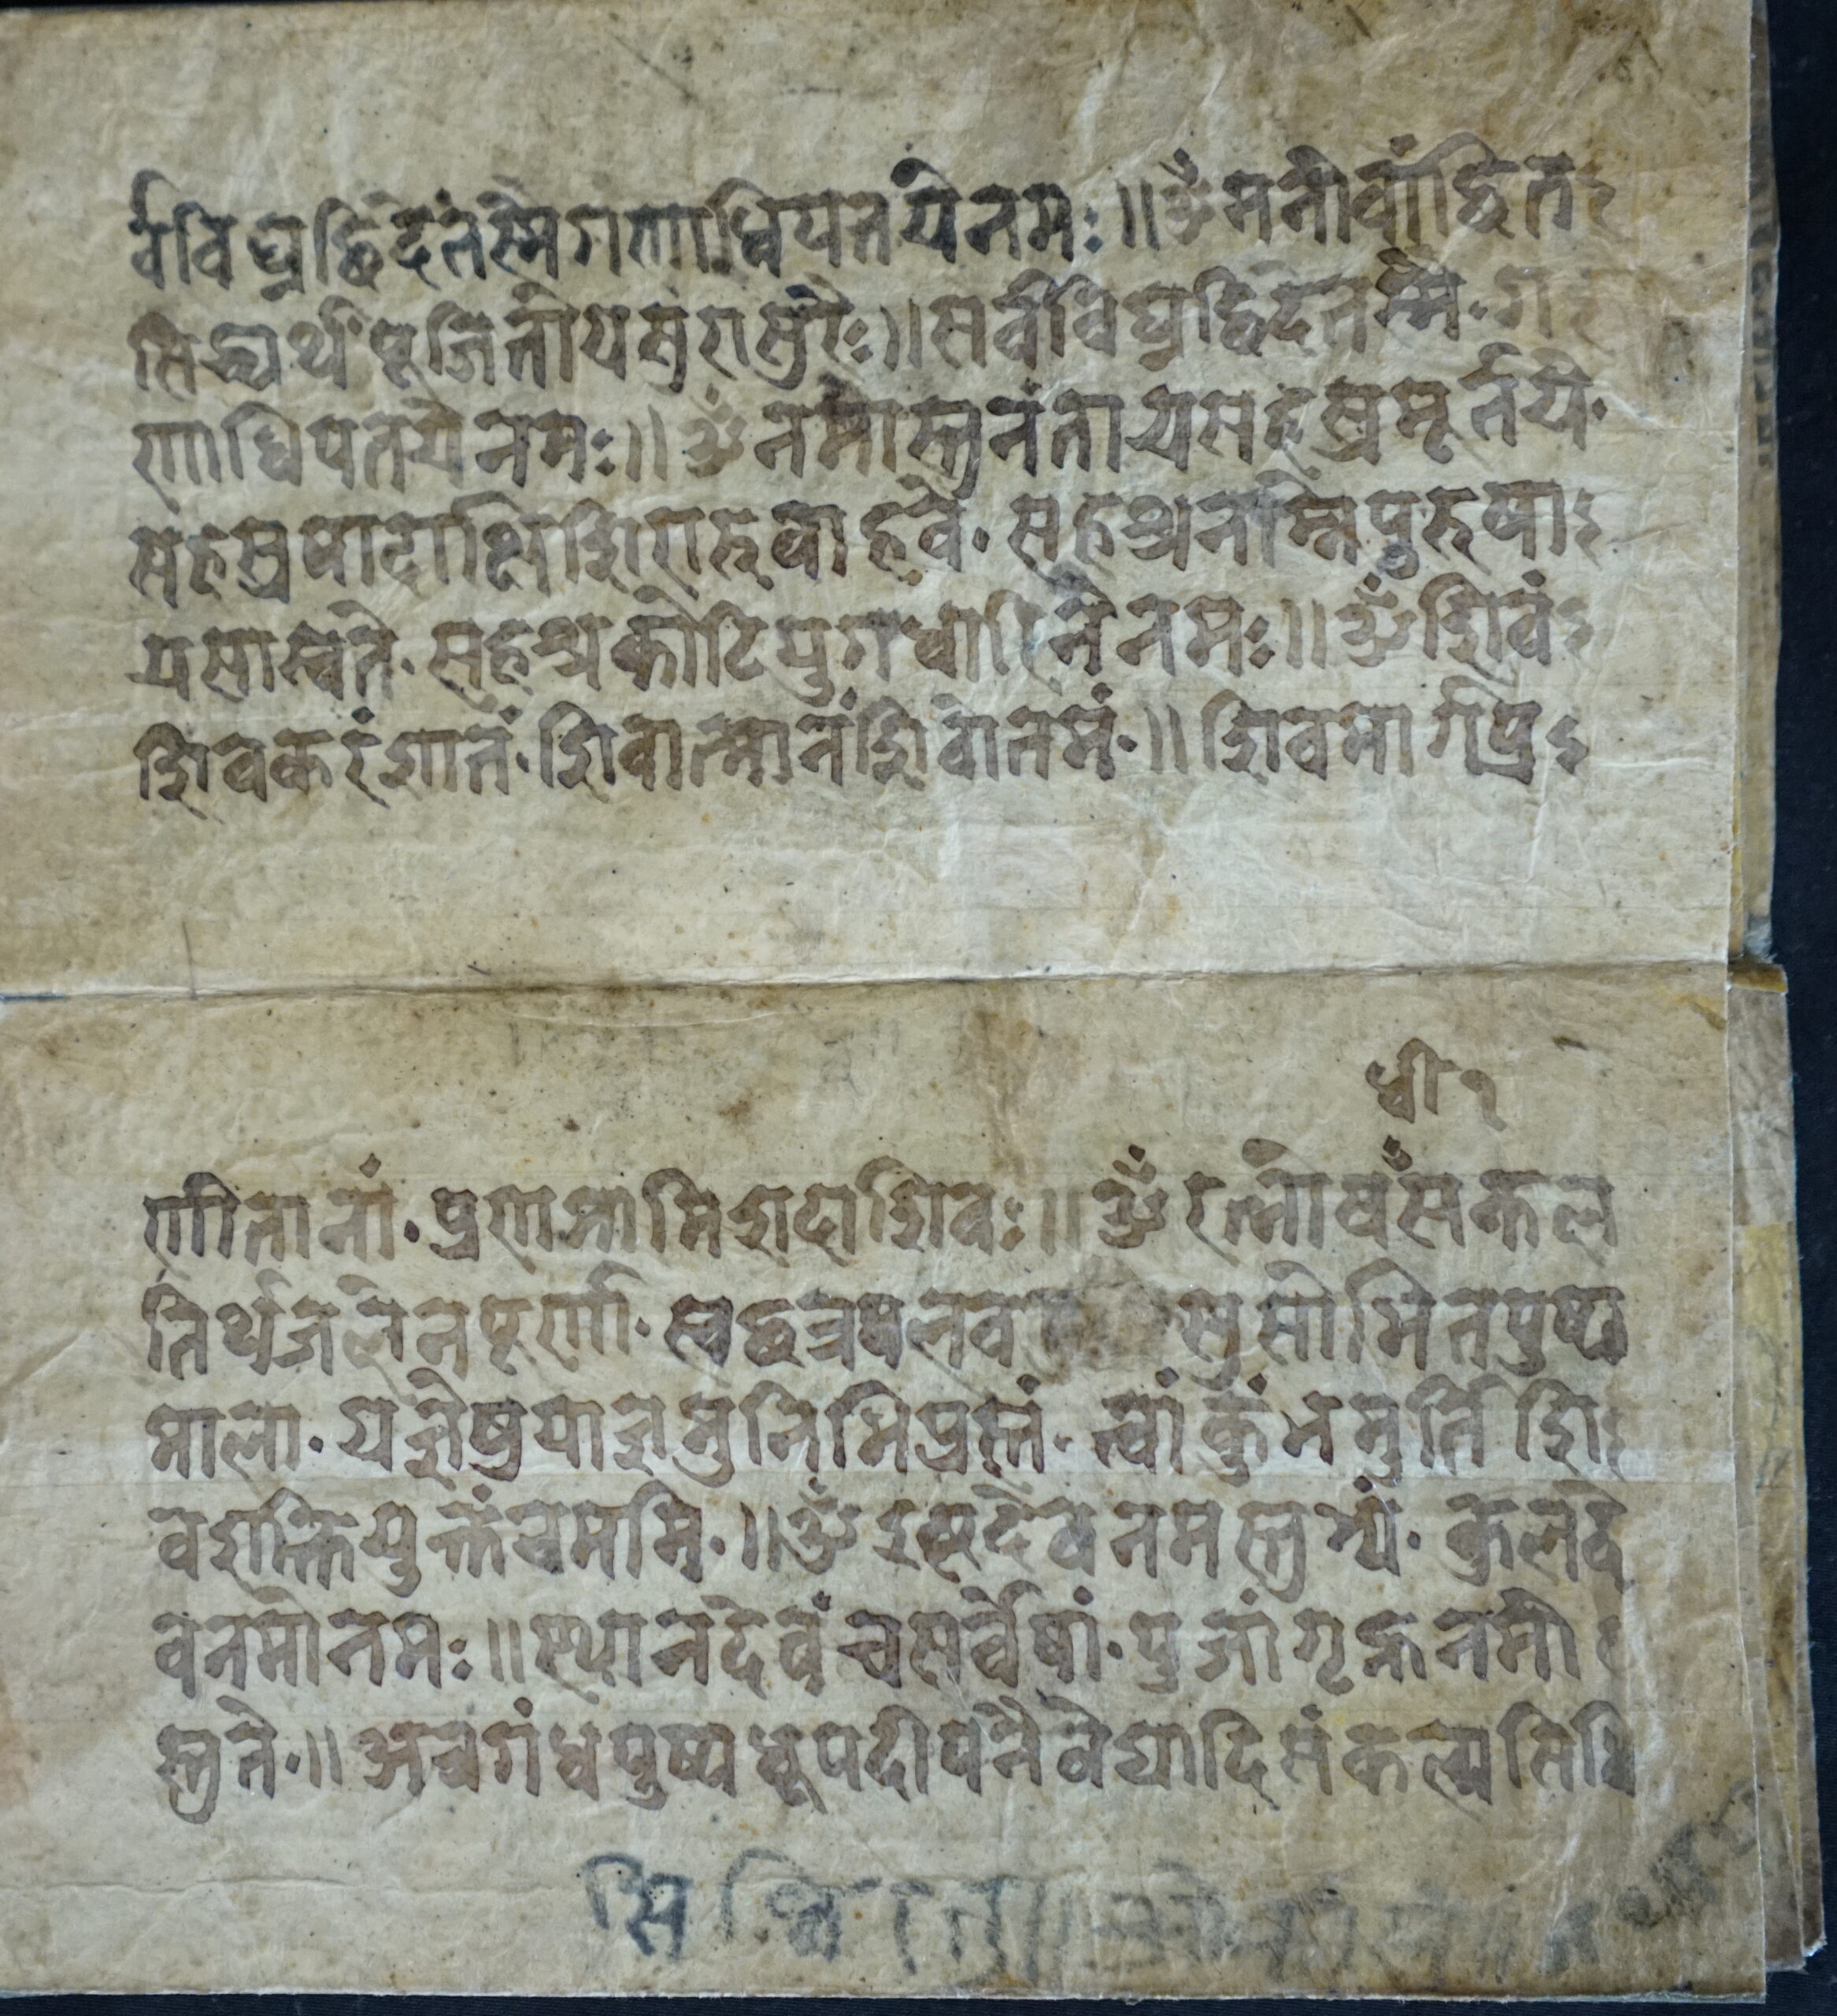 र्वविघ्नछिदेतस्मै गणाधिपतयेनमः॥ॐमनोवांछित
सिद्ध्यर्थं पूजितोयसुरासुरैः॥सर्वविघ्नछिदेतस्मै॰ग
णाधिपतयेनमः॥ॐनमोस्त्वनंतायसहस्रमूर्तये॰
सहस्रपादाक्षिशिरोरुवाहवे॰सहश्रनाम्निपुरुषाऽ
यसास्वते॰सहश्रकोटियुगधारिनेनमः॥ॐशिवंऽ
शिवकरंशातं॰शिवात्मानंशिवोतमं॰॥शिवमार्गप्रऽ
धी१
णीतानां॰प्रणमामिशदाशिवः॥ॐरत्नोषंसकल
तिर्थजलेनपूर्ण॰स्वछत्रपलव सुसोभितपुष्प
माला॰यज्ञेषुयाज्ञमुनिभिप्रस्तं॰त्वांकुंभमुर्तिशिऽ
वशक्तियुक्तंनममि॰॥ॐइष्टदेवनमस्तुभ्यं॰कुलदे
वनमोनमः॥स्थानदेवंचसर्वेषां॰पुजांगृह्ननमो
स्तुते॰॥अत्रगंधपुष्पधूपदीपनैवेद्यादिसंकल्पसिधि